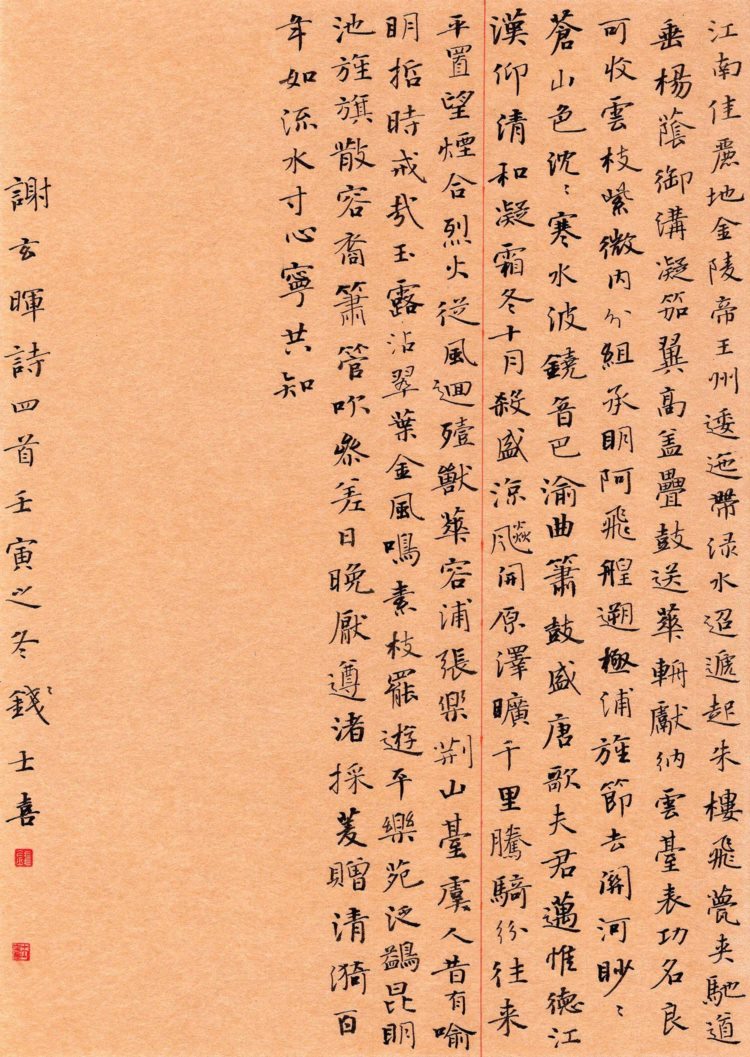 江南佳麗地金陵帝王州逶迤帶淥水迢遞起朱樓飛甍夾馳道
垂楊蔭御溝凝笳翼高盖疊鼓送華輈獻納雲臺表功名良
可收雲枝紫微内分組承明阿飛艎遡極浦旌節去關河眇〻
蒼山色沈〻寒水波鐃音巴渝曲簫鼓盛唐歌夫君邁惟德江
漢仰清和凝霜冬十月殺盛涼飇開原澤曠千里騰騎紛往来
平置望煙合烈火從風迴殪獸華容浦張樂荆山臺虞人昔有喻
明哲時戒哉玉露沾翠葉金風鳴素枝罷遊平樂苑泛鷁昆明
池旌旗散容裔簫管吹參差日晚厭遵渚採菱贈清漪百
年如流水寸心寧共知
謝玄暉詩四首壬寅之冬錢〻士喜